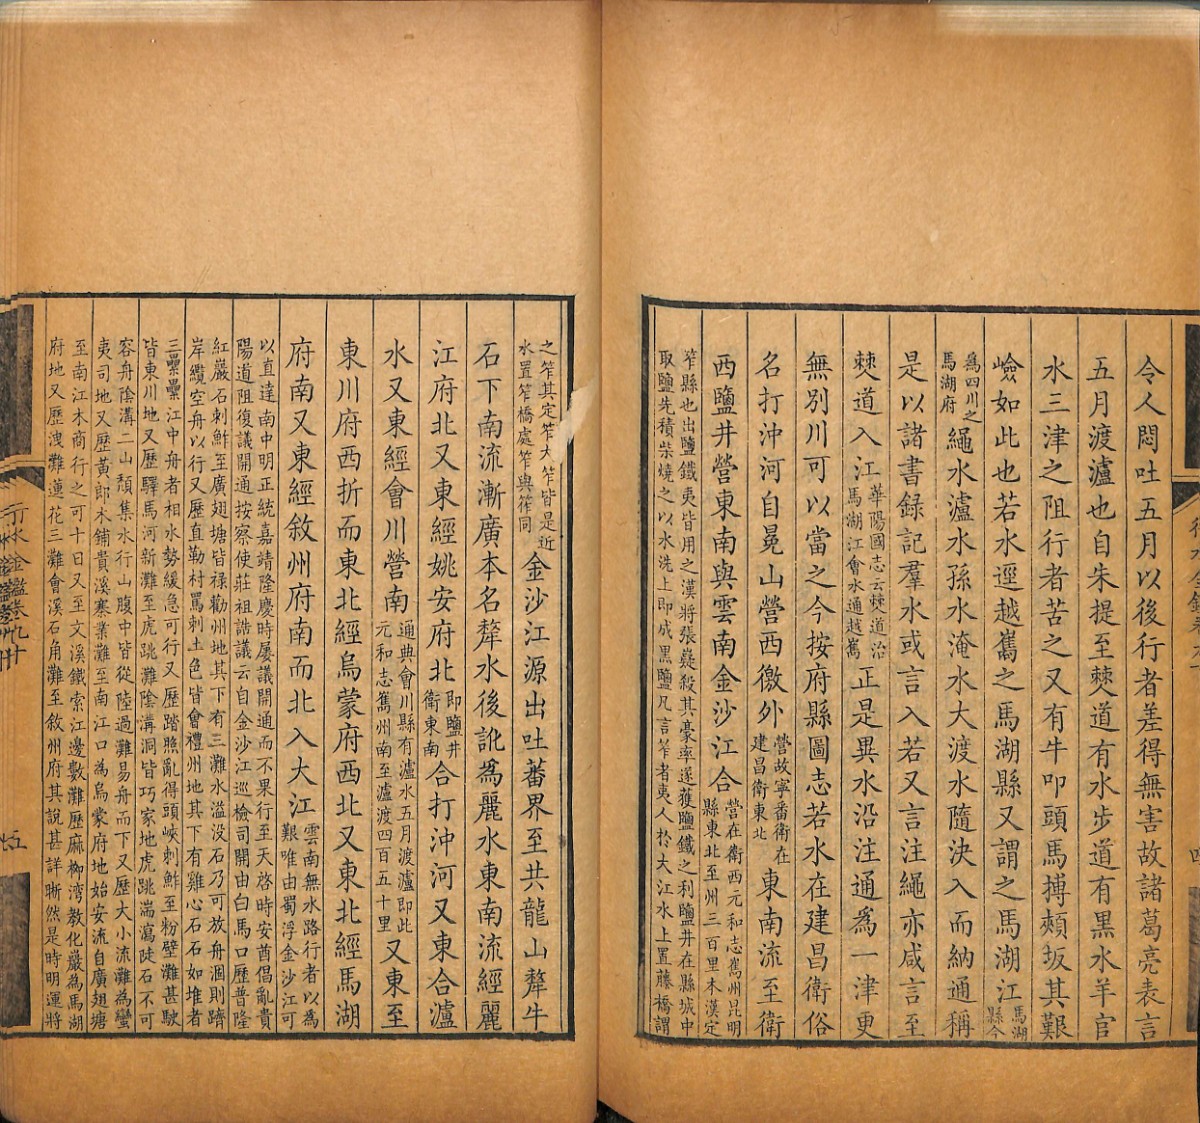 令人悶吐五月以後行者差得無害故諸葛亮表言
五月渡瀘也自朱提至僰道有水步道有黑水羊官
水三津之阻行者苦之又有牛叩頭馬搏頰坂其艱
嶮如此也若水逕越巂之馬湖縣又謂之馬湖江馬湖縣今
為四川之馬湖府繩水瀘水孫水淹水大渡水隨決入而納通稱
是以諸書錄記羣水或言入若又言注繩亦咸言至
僰道入江華陽國志云僰道治馬湖江會水通越巂正是異水沿注通為一津更
無別川可以當之今按府縣圖志若水在建昌衛俗
名打沖河自冕山營西徼外營故寧番衛在建昌衛東北東南流至衛
西鹽井營東南與雲南金沙江合營在衛西元和志巂州昆明縣東北至州三百里本漢定
筰縣也出鹽鐵夷皆用之漢將張嶷殺其豪率遂獲鹽鐵之利鹽井在縣城中
取鹽先積柴燒之以水洗上即成黑鹽凡言筰者夷人於大江水上置藤橋謂
之筰其定筰大筰皆是近水置筰橋處筰與筰同金沙江源出吐蕃界至共龍山犛牛
石下南流漸廣本名犛水後訛為麗水東南流經麗
江府北又東經姚安府北即鹽井衛東南合打沖河又東合瀘
水又東經會川營南通典會川縣有瀘水五月渡瀘即此元和志巂州南至瀘渡四百五十里又東至
東川府西折而東北經烏蒙府西北又東北經馬湖
府南又東經敘州府南而北入大江雲南無水路行者以為艱唯由蜀浮金沙江可
以直達南中明正統嘉靖隆慶時屢議開通而不果行至天啓時安酋倡亂貴
陽道阻復議開通按察使莊祖誥議云自金沙江巡檢司開由白馬口歷普隆
紅巖石剌鮓至廣翅塘皆祿勸州地其下有三灘水溢沒石乃可放舟涸則躋
岸纜空舟以行又歷直勒村罵剌土色皆會禮州地其下有雞心石石如堆者
三纍纍江中舟者相水勢緩急可行又歷踏照亂得頭峽剌鮓至粉壁灘甚駛
皆東川地又歷驛馬河新灘至虎跳灘陰溝洞皆巧家地虎跳湍瀉陡石不可
容舟陰溝二山頹集水行山腹中皆從陸過灘易舟而下又歷大小流灘為蠻
夷司地又歷黃郎木鋪貴溪寨業灘至南江口為烏蒙府地始安流自廣翅塘
至南江木商行之可十日又至文溪鐵索江邊數灘歷麻柳灣教化巖為馬湖
府地又歷洩灘蓮花三灘會溪石角灘至敘州府其說甚詳晰然是時明運將
行水金鑑卷九十
五